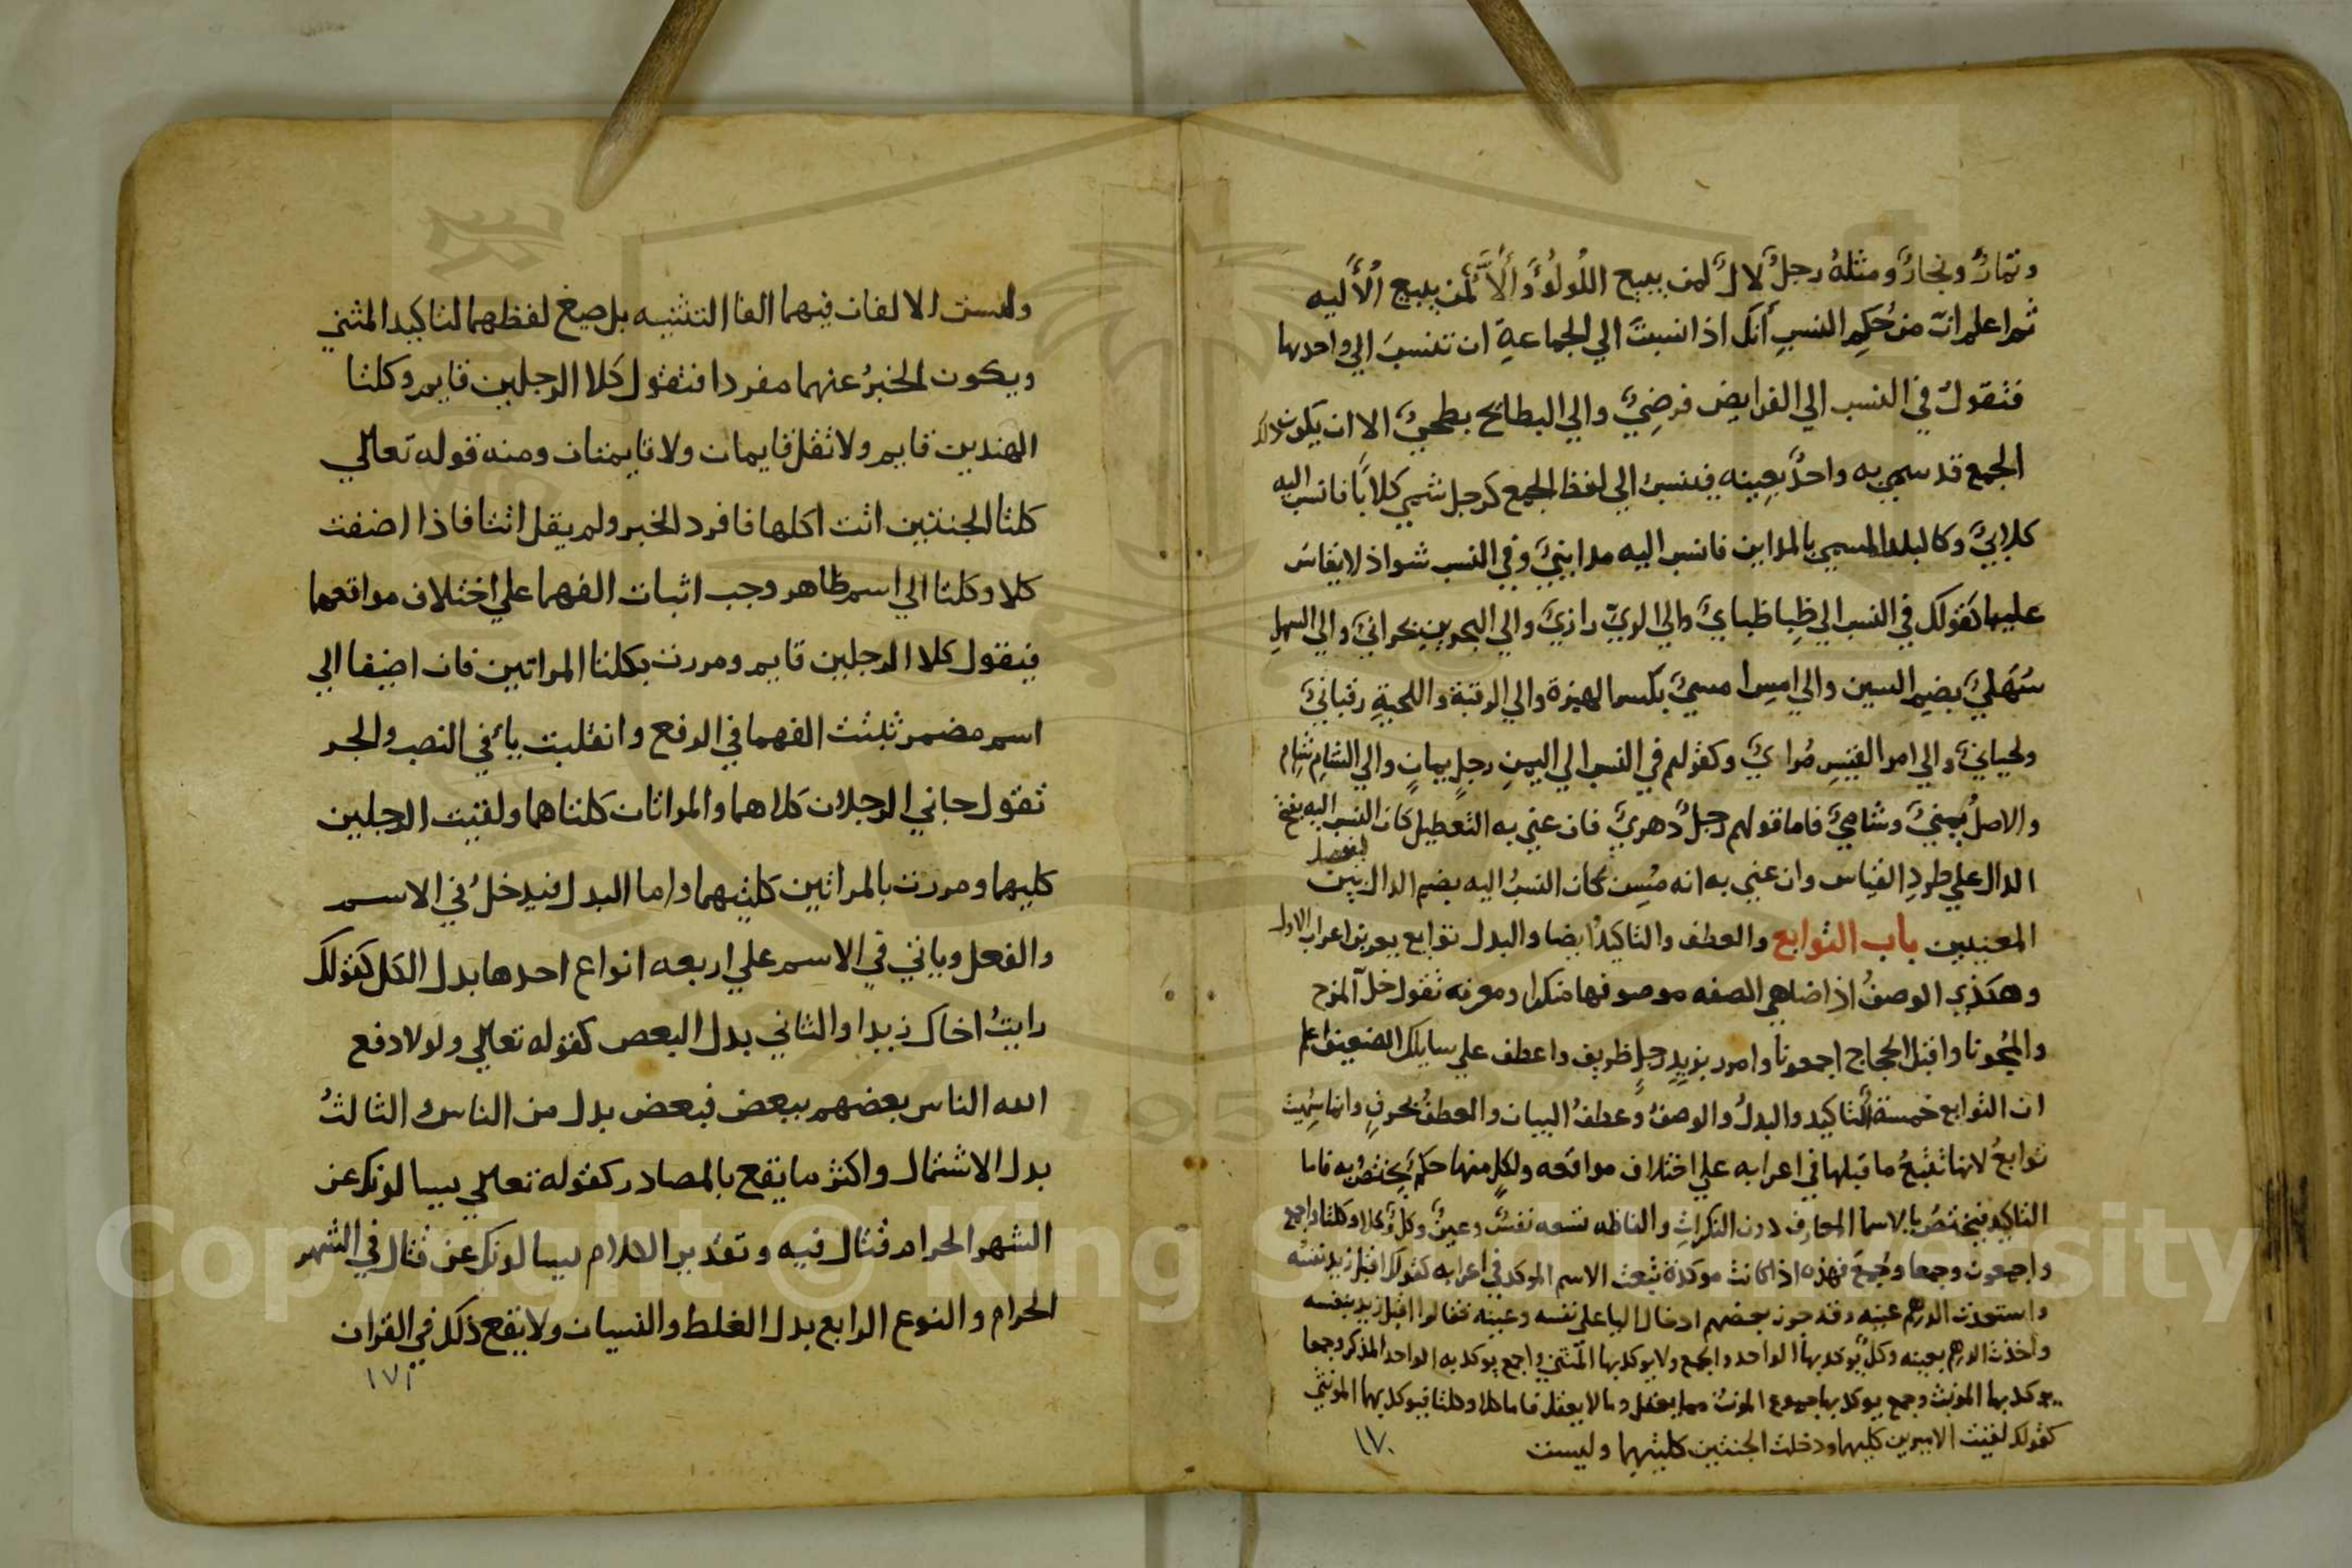 وتمارٌ ونجارٌ ومثلهُ رجلٌ لالٌ لمن يبيع اللُولُوَ وَأَلاَّءٌ لمن يبيع الألَيه
ثم اعلم ان من حُكمِ النسبِ أنك اذا نسبتَ الي الجماعةِ ان تنسبَ الي واحدها
فتقولُ في النسب الي الفرايض فرضِيٌ والي البطائح بطحيٌ الا ان يكون ذلك
الجمع قد سمي به واحدٌ بعينه فينسبُ الي لفظ الجمع كرجل سُمي كلابًا فانسب اليه
كلابيٌ وكالبلد المسمي بالمداين فانسب اليه مداينيٌ وفي النسب شواذ لا يقاس
عليها كقولك في النسب الي طِيا طياىٌ والي الريّ رازيٌ والي البحرين بحرانيٌ والي السهلِ
سُهليٌ بضم السين والي امسِ امسيٌ بكسر الهمزة والي الرقبة واللحيةِ رقبانيٌ
ولحيانيٌ والي امرا القيسِ مُراىٌ وكقولهم في النسب الي اليمنِ رجلٍ يمانٍ والي الشامِ شامٍ
والاصلُ يمنيٌ وشاميٌ فاما قولهم رجلٌ دهريٌ فان عني به التعطيل كان النسب اليه بفتح
الدال علي طردِ القياس وان عني به انه مُسِن كان النسبُ اليه بضم الدال ليفصل بين
المعنيين باب التوابع والعطف والتاكيدُ ايضا والبدل توابع يعربن اعراب الاول
وهكذي الوصفُ اذا ضاهي الصفه موصوفها منكرا ومعرفه تقول خل المزح
والمُجونا واقبل الحجاج اجمعونا وامرر بزيدٍ رجلٍ ظريف واعطف علي سايلك الضعيف اعلم
ان التوابع خمسة التاكيد والبدلُ والوصفُ وعطفُ البيان والعطفُ بحرفٍ وانما سُميت
توابعُ لانها تتبعُ ما قبلها في اعرابه علي اختلاف مواقعه ولكلٍ منها حكمٌ يختصُ به فاما
التاكيد فيختصُ بالاسما المعارف دون النكراتِ والفاظه تسعه نفسٌ وعينٌ وكلٌ وكلا وكلتا واجمع
واجمعون وجمعا وجُمعَ فهذه اذا كانت موكدة تبعت الاسم الموكد في اعرابه كقولك اقبل زيد نفسُه
واستعدت الدرهم عينه وقد جوز بعضهم ادخال البا علي نفسه وعينه فقالوا اقبل زيد بنفسه
واخذت الدرهم بعينه وكلٌ يوكد بها الواحد والجمع ولا يوكد بها المثني واجمع يوكد به الواحد المذكر وجمعا
يوكد بها المونث وجمع يوكد بها جموع المونث مما يعقل وما لا يعقل فاما كلا وكلتا فيوكد بهما المونثي
كقولك لقيت الاميرين كليهما ودخلت الجنتين كلتيهما وليست
١٧٠
وليست الالفان فيهما الفا التثنيه بل صيغ لفظهما لتاكيد المثني
ويكون الخبرُ عنهما مفردا فتقول كلا الرجلين قايم وكلتا
الهندين قايم ولا تقل قايمان ولا قايمتان ومنه قوله تعالي
كلتا الجنتين اتت اكلها فافرد الخبر ولم يقل اتتا فاذا اضفت
كلا وكلتا الي اسم ظاهر وجب اثبات الفهما علي اختلاف مواقعهما
فيقول كلا الرجلين قايم ومررت بكلتا المراتين فان اضيفا الي
اسم مضمر ثبتت الفهما في الرفع وانقلبت يائ في النصب والجر
تقول جاني الرجلان كلاهما والمراتان كلتاهما ولقيت الرجلين
كليهما ومررت بالمراتين كلتيهما واما البدل فيدخلُ في الاسم
والفعل وياتي في الاسم علي اربعه انواع احدها بدل الكل كقولك
رايتُ اخاك زيدا والثاني بدل البعص كقوله تعالي ولولا دفع
الله الناس بعضهم ببعض فبعض بدل من الناس الثالثُ
بدل الاشتمال واكثر ما يقع بالمصادر كقوله تعالي يسالونك عن
الشهر الحرام قتال فيه وتقدير الكلام يسالونك عن قتال في الشهر
الحرام والنوع الرابع بدل الغلط والنسيان ولا يقع ذلك في القران
١٧١
Copyright © King Saud University